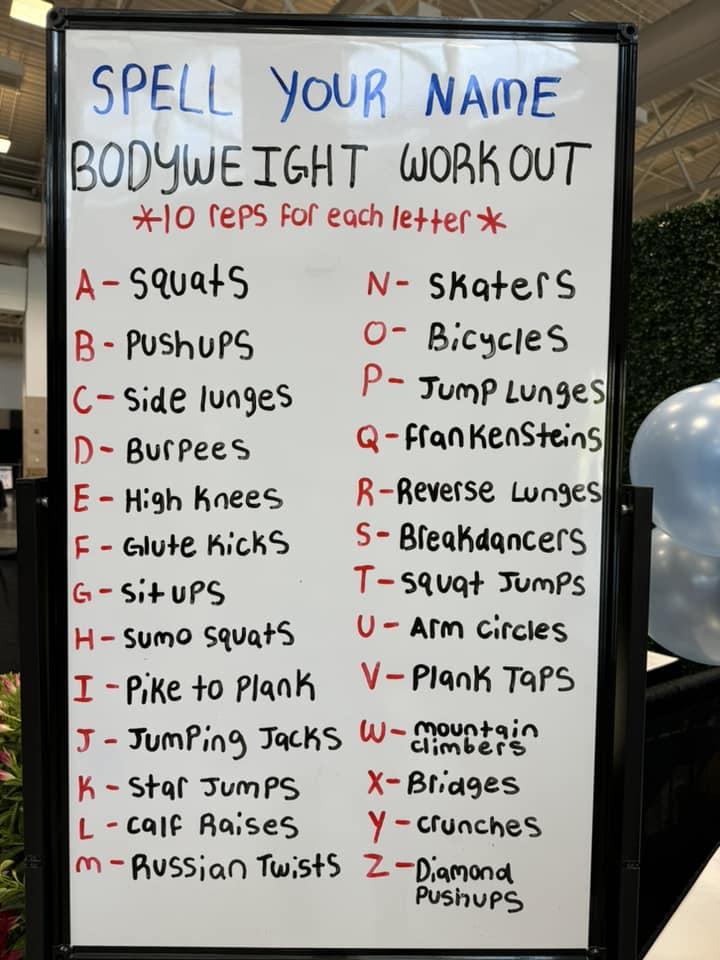 SPELL YOUR NAME
BODYWEIGHT WORKOUT
*10 reps for each letter*
A - Squats
B - Pushups
C - Side lunges
D - Burpees
E - High Knees
F - Glute Kicks
G - Sit ups
H - Sumo Squats
I - Pike to Plank
J - Jumping Jacks
K - Star Jumps
L - Calf Raises
M - Russian Twists
N - Skaters
O - Bicycles
P - Jump Lunges
Q - Frankensteins
R - Reverse Lunges
S - Breakdancers
T - Squat Jumps
U - Arm Circles
V - Plank Taps
W - mountain
climbers
X - Bridges
Y - crunches
Z - Diamond
Pushups